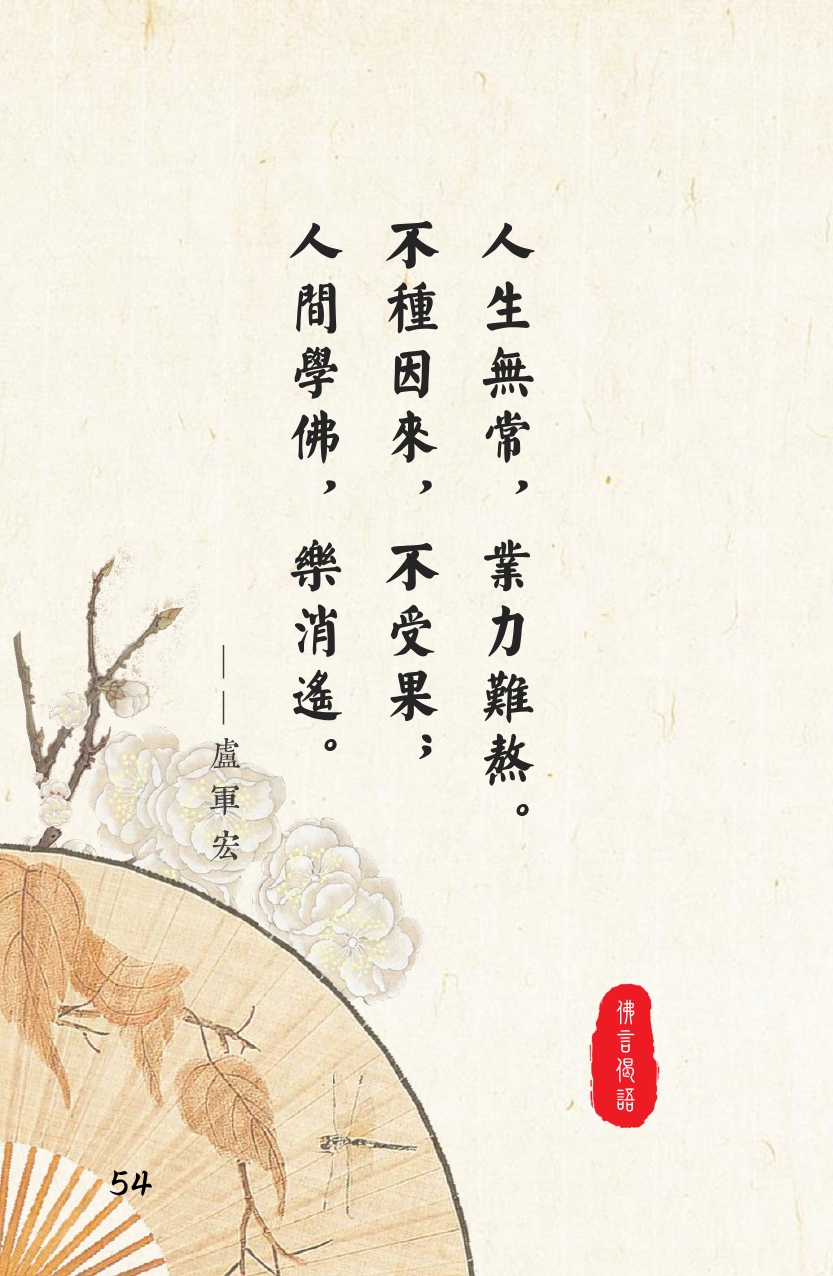 人生無常，業力難熬。
不種因來，不受果；
人間學佛，樂消遙。
——盧軍宏
佛言偈語
54